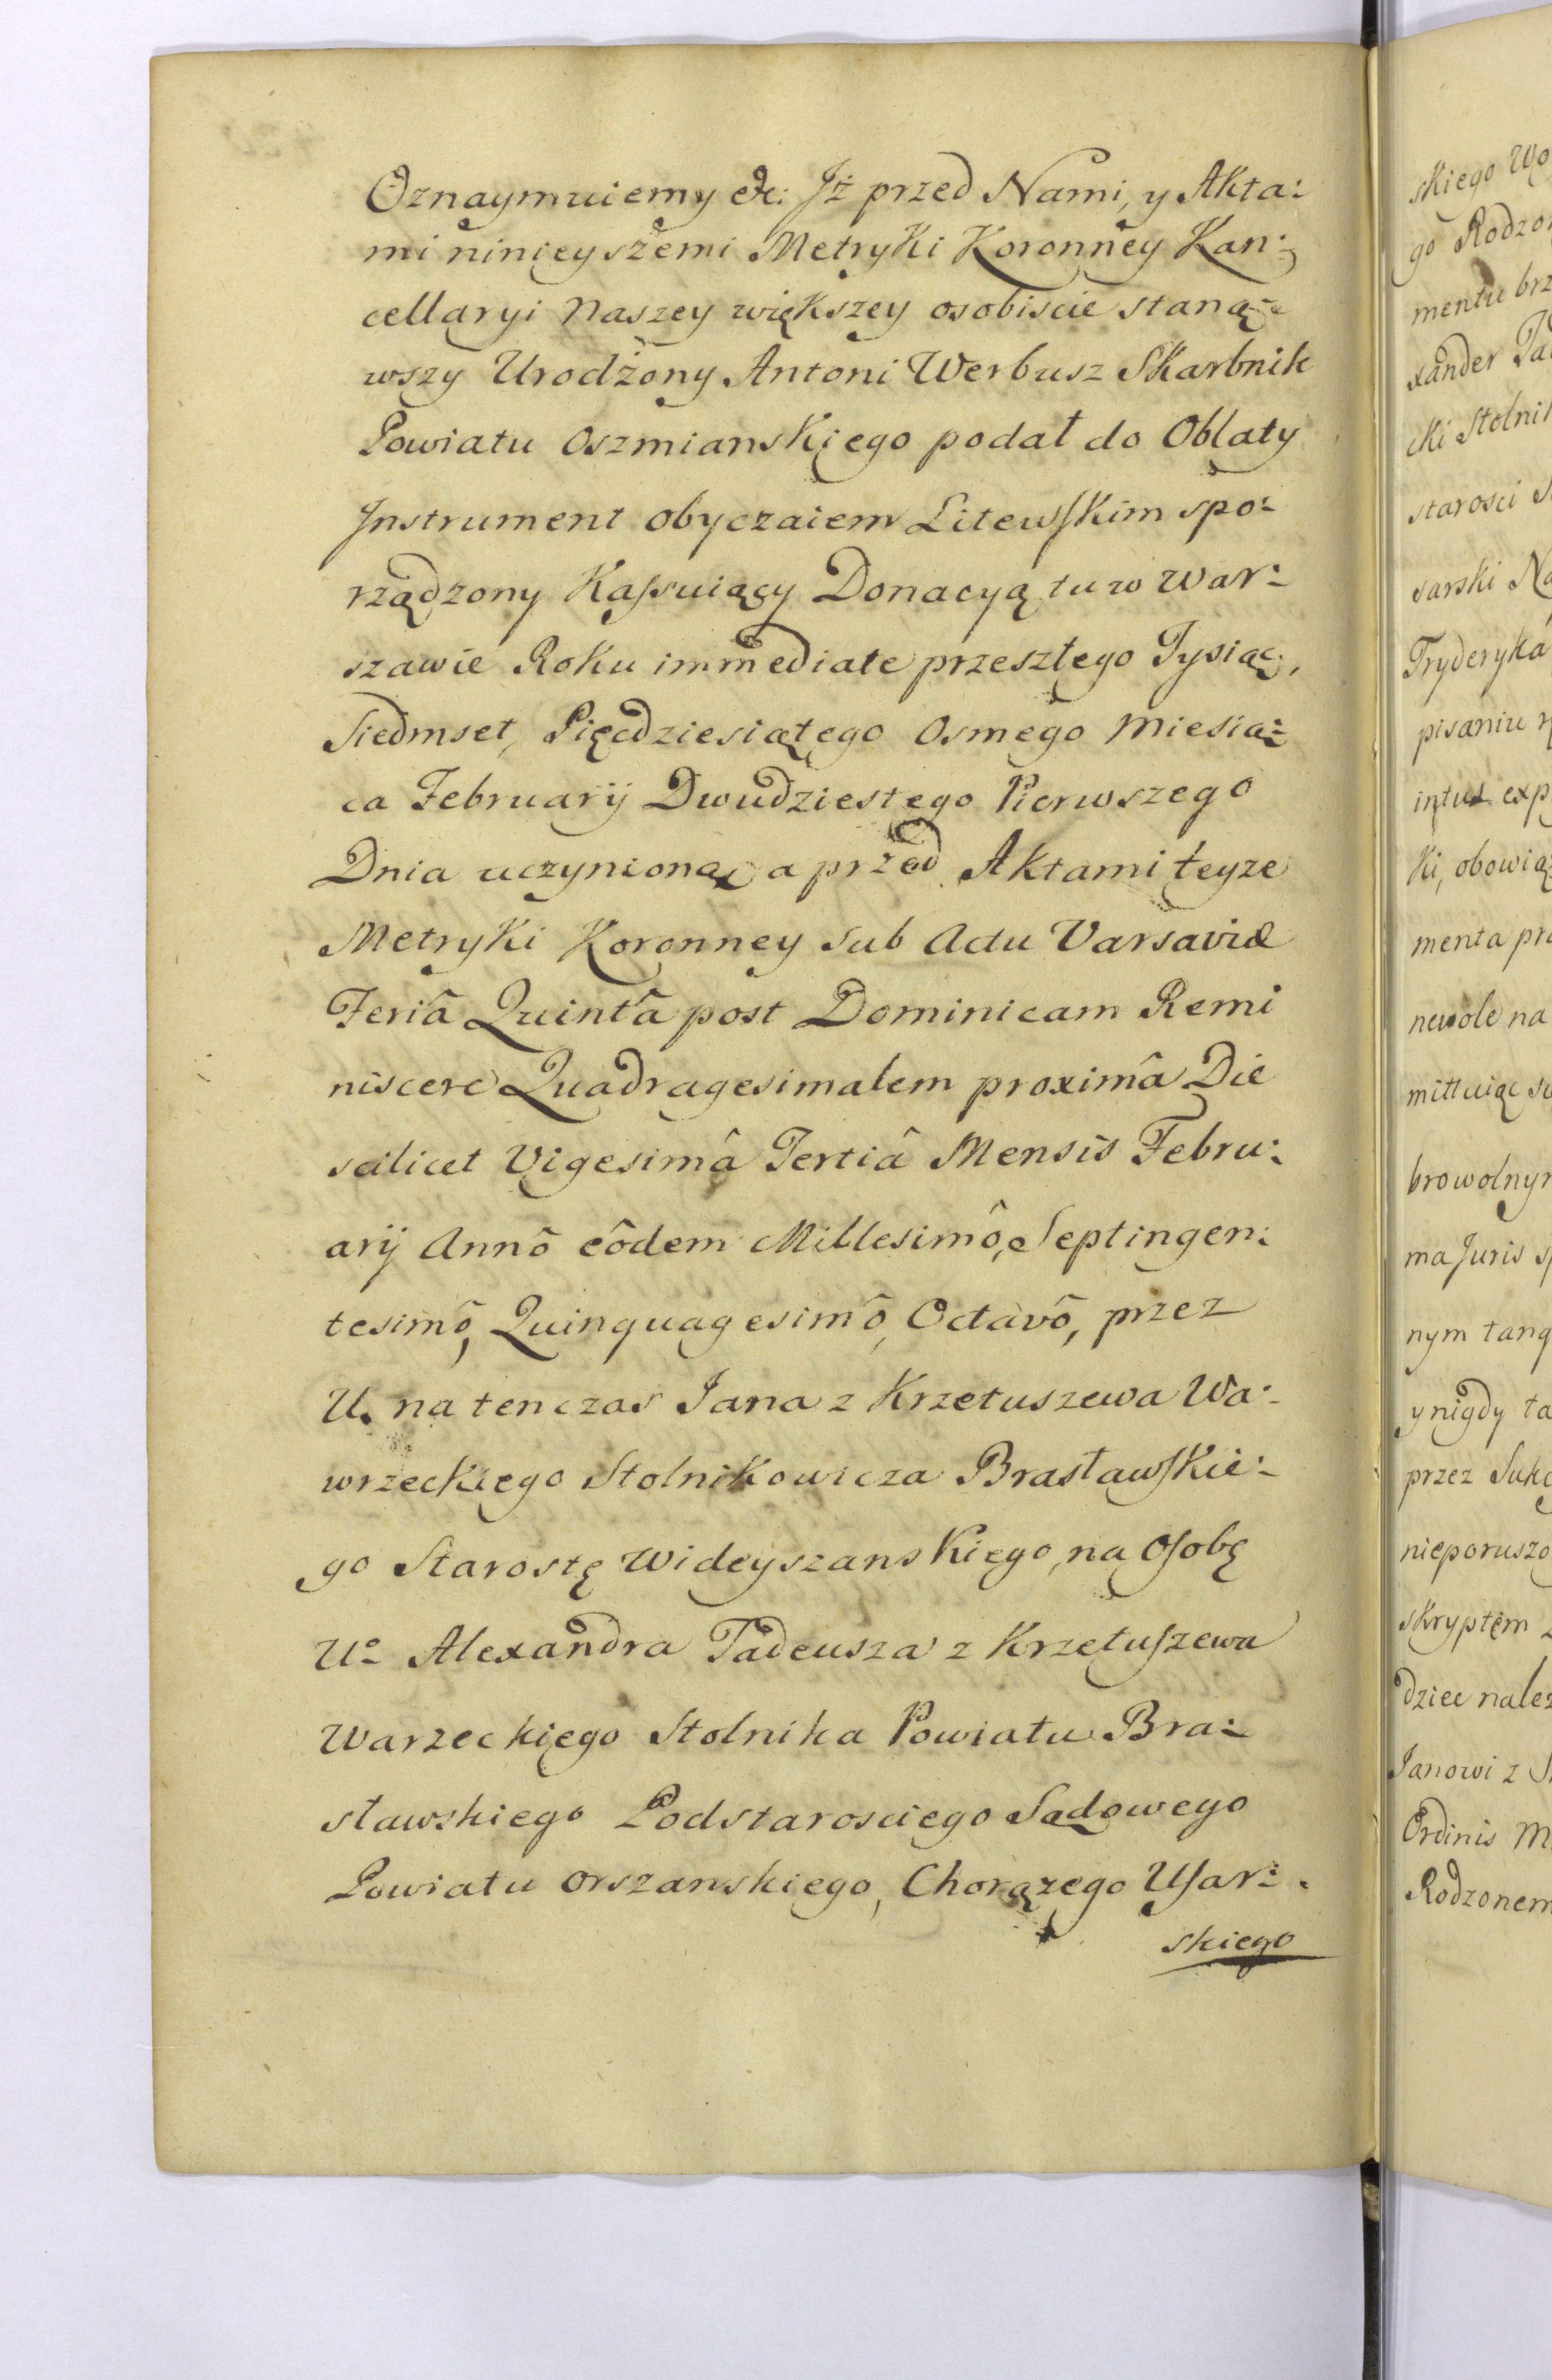 Oznaymuiemy &c: Iż przed Nami, y Akta:
mi ninieyszemi Metryki Koronney Kan:
cellaryi Naszey większey osobiscie staną:
wszy Urodżony Antoni Werbusz Skarbnik
Powiatu Oszmianskiego podał do Oblaty
Instrument obyczaiem Litewskim spo:
rządzony Kassuiący Donacyą tu w War:
szawie Roku immediate przeszłego Tysiąc,
Siedmset, Pięcdziesiątego Osmego Miesią:
ca February Dwudziestego Pierwszego
Dnia uczynioną, a przed Aktami teyze
Metryki Koronney sub Actu Varsaviæ
Feriâ Quintâ post Dominicam Remi
niscere Quadragesimalem proximâ Die
scilicet Vigesimâ Tertiâ Mensis Febru:
arij Annô eôdem Millesimô, Septingen:
tesimô, Quinquagesimô, Octavô, przez
U. na tenczas Jana z Krzetuszewa Wa:
wrzeckiego Stolnikowicza Brasławskie:
go Starostę Wideyszanskiego, na Osobę
Uo Alexandra Tadeusza z Krzetuszewa
Warzeckiego Stolnika Powiatu Bra:
sławskiego Podstarosciego Sądowego
Powiatu Orszanskiego, Chorązego Usar:
skiego
skiego Wo
go Rodzon
mentu brz
xander Ta
cki Stolnik
starosci
sarski Na
Fryderyka
pisaniu
intus exp
ki, obowią
menta pra
newole na
mittuiąc
browolnym
ma Juris
nym tanq
y nigdy ta
przez Sukc
nieporuszo
skryptem
dziec nalez
Janowi z
Ordinis M
Rodzonem